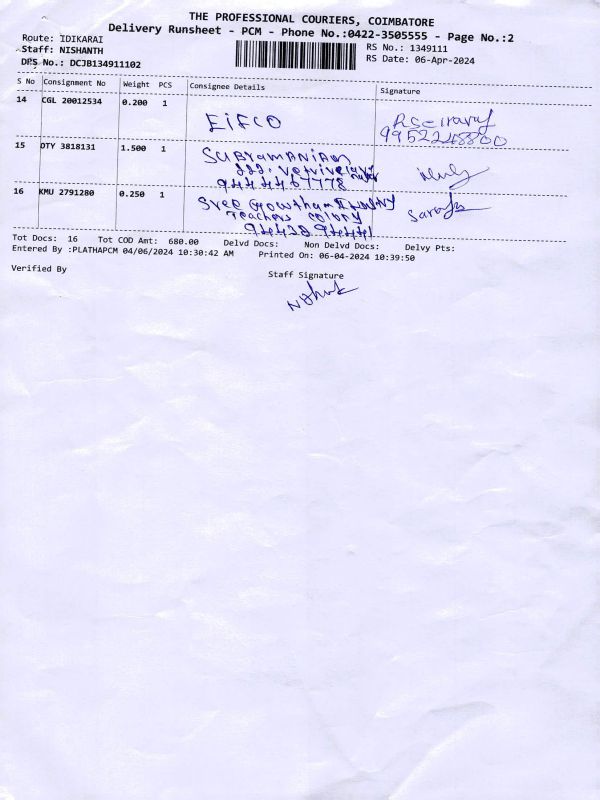 THE PROFESSIONAL COURIERS, COIMBATORE
Delivery Runsheet - PCM - Phone No.:0422-3505555 - Page No.:2
Route: IDIKARAI
Staff: NISHANTH
DPS No.: DCJB134911102
RS No.: 1349111
RS Date: 06-Apr-2024
S No Consignment No Weight PCS Consignee Details Signature
14 CGL 20012534 0.200 1 EIFCO
15 DTY 3818131 1.500 1 SUBYAMANIAN
222,
9444467778
16 KMU 2791280 0.250 1 Sree Gowtham
Teachers colony
94428 94441
Tot Docs: 16 Tot COD Amt: 680.00 Delvd Docs: Non Delvd Docs: Delvy Pts:
Entered By :PLATHAPCM 04/06/2024 10:30:42 AM Printed On: 06-04-2024 10:39:50
Verified By
Staff Signature